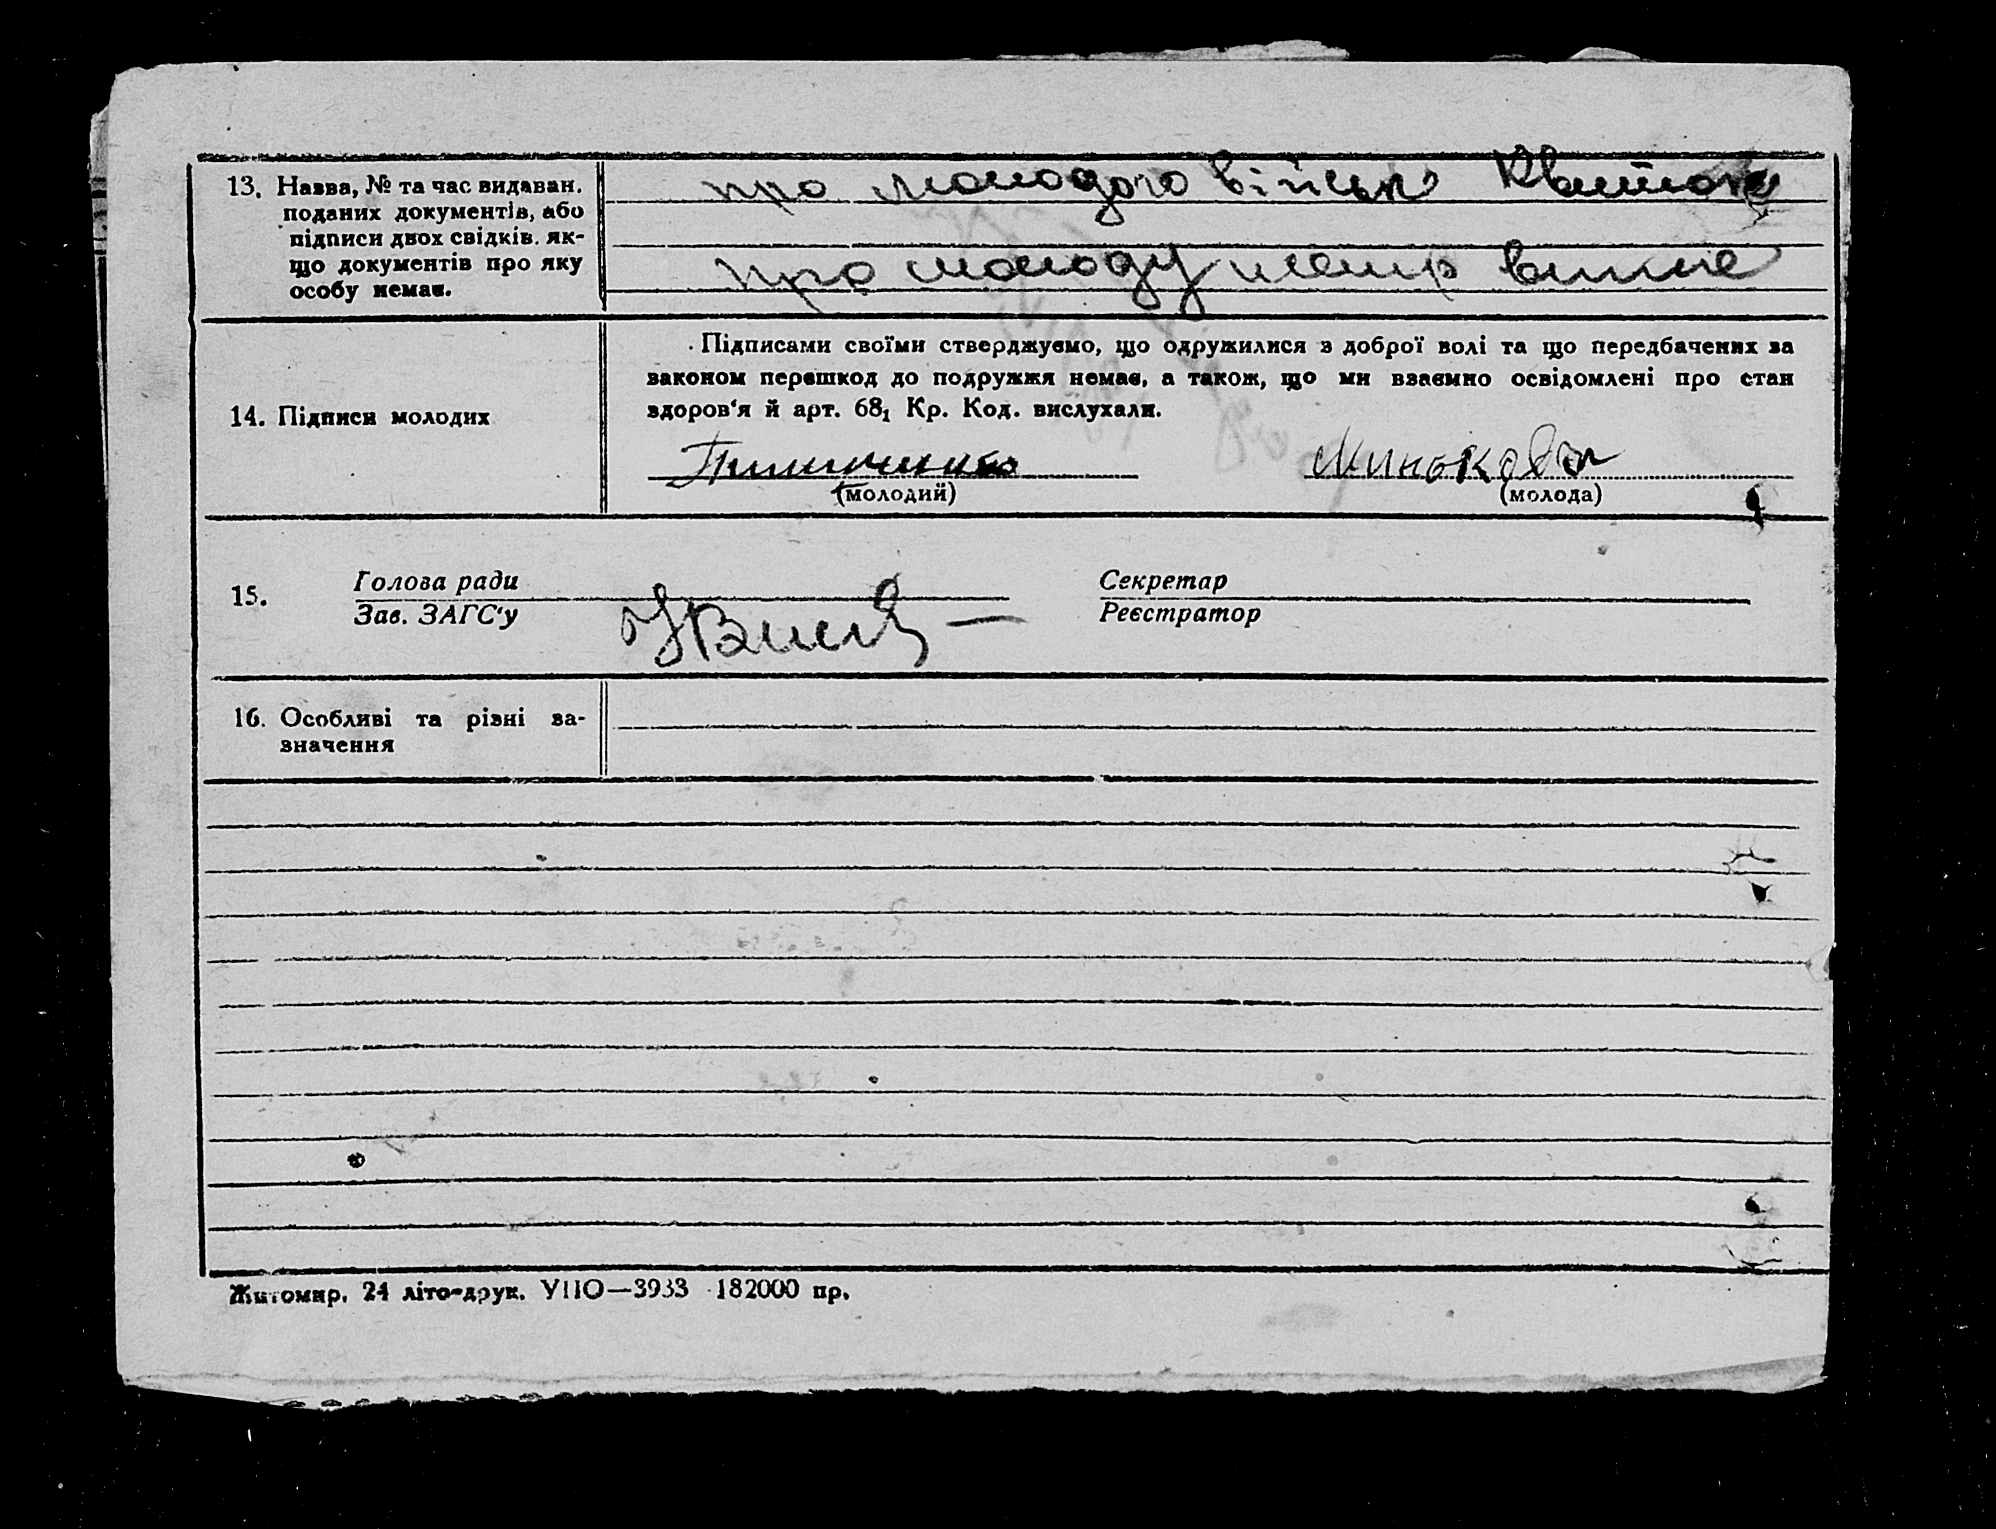 13. Назва, № та час видаван.
поданих документів, або
підписи двох свідків. як-
що документів про яку
особу немає.
про молодого військ Квиток
про молоду метр виписе
14. Підписи молодих
Підписами своїми стверджуємо, що одружилися з доброї волі та що передбачених за
законом перешкод до подружжя немає, а також, що ми взаємно освідомлені про стан
здоров'я й арт. 68₁ Кр. Код. вислухали.
(молодий)
(молода)
15.
Голова ради
Зав. ЗАГС'у
Секретар
Реєстратор
16. Особливі та різні за-
значення
Житомир. 24 літо-друк. УПО—3933 182000 пр.